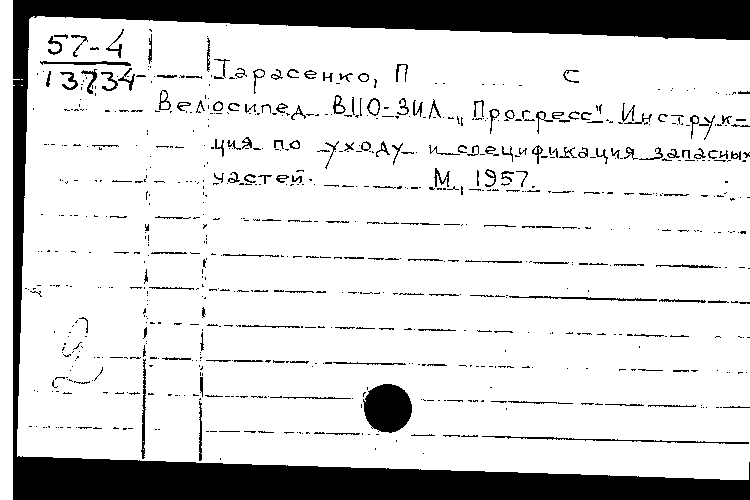 57-4
13734
Тарасенко, П С
Велосипед В110-ЗИЛ „Прогресс". Инструк-
ция по уходу и спецификация запасных
частей. М., 1957.
2